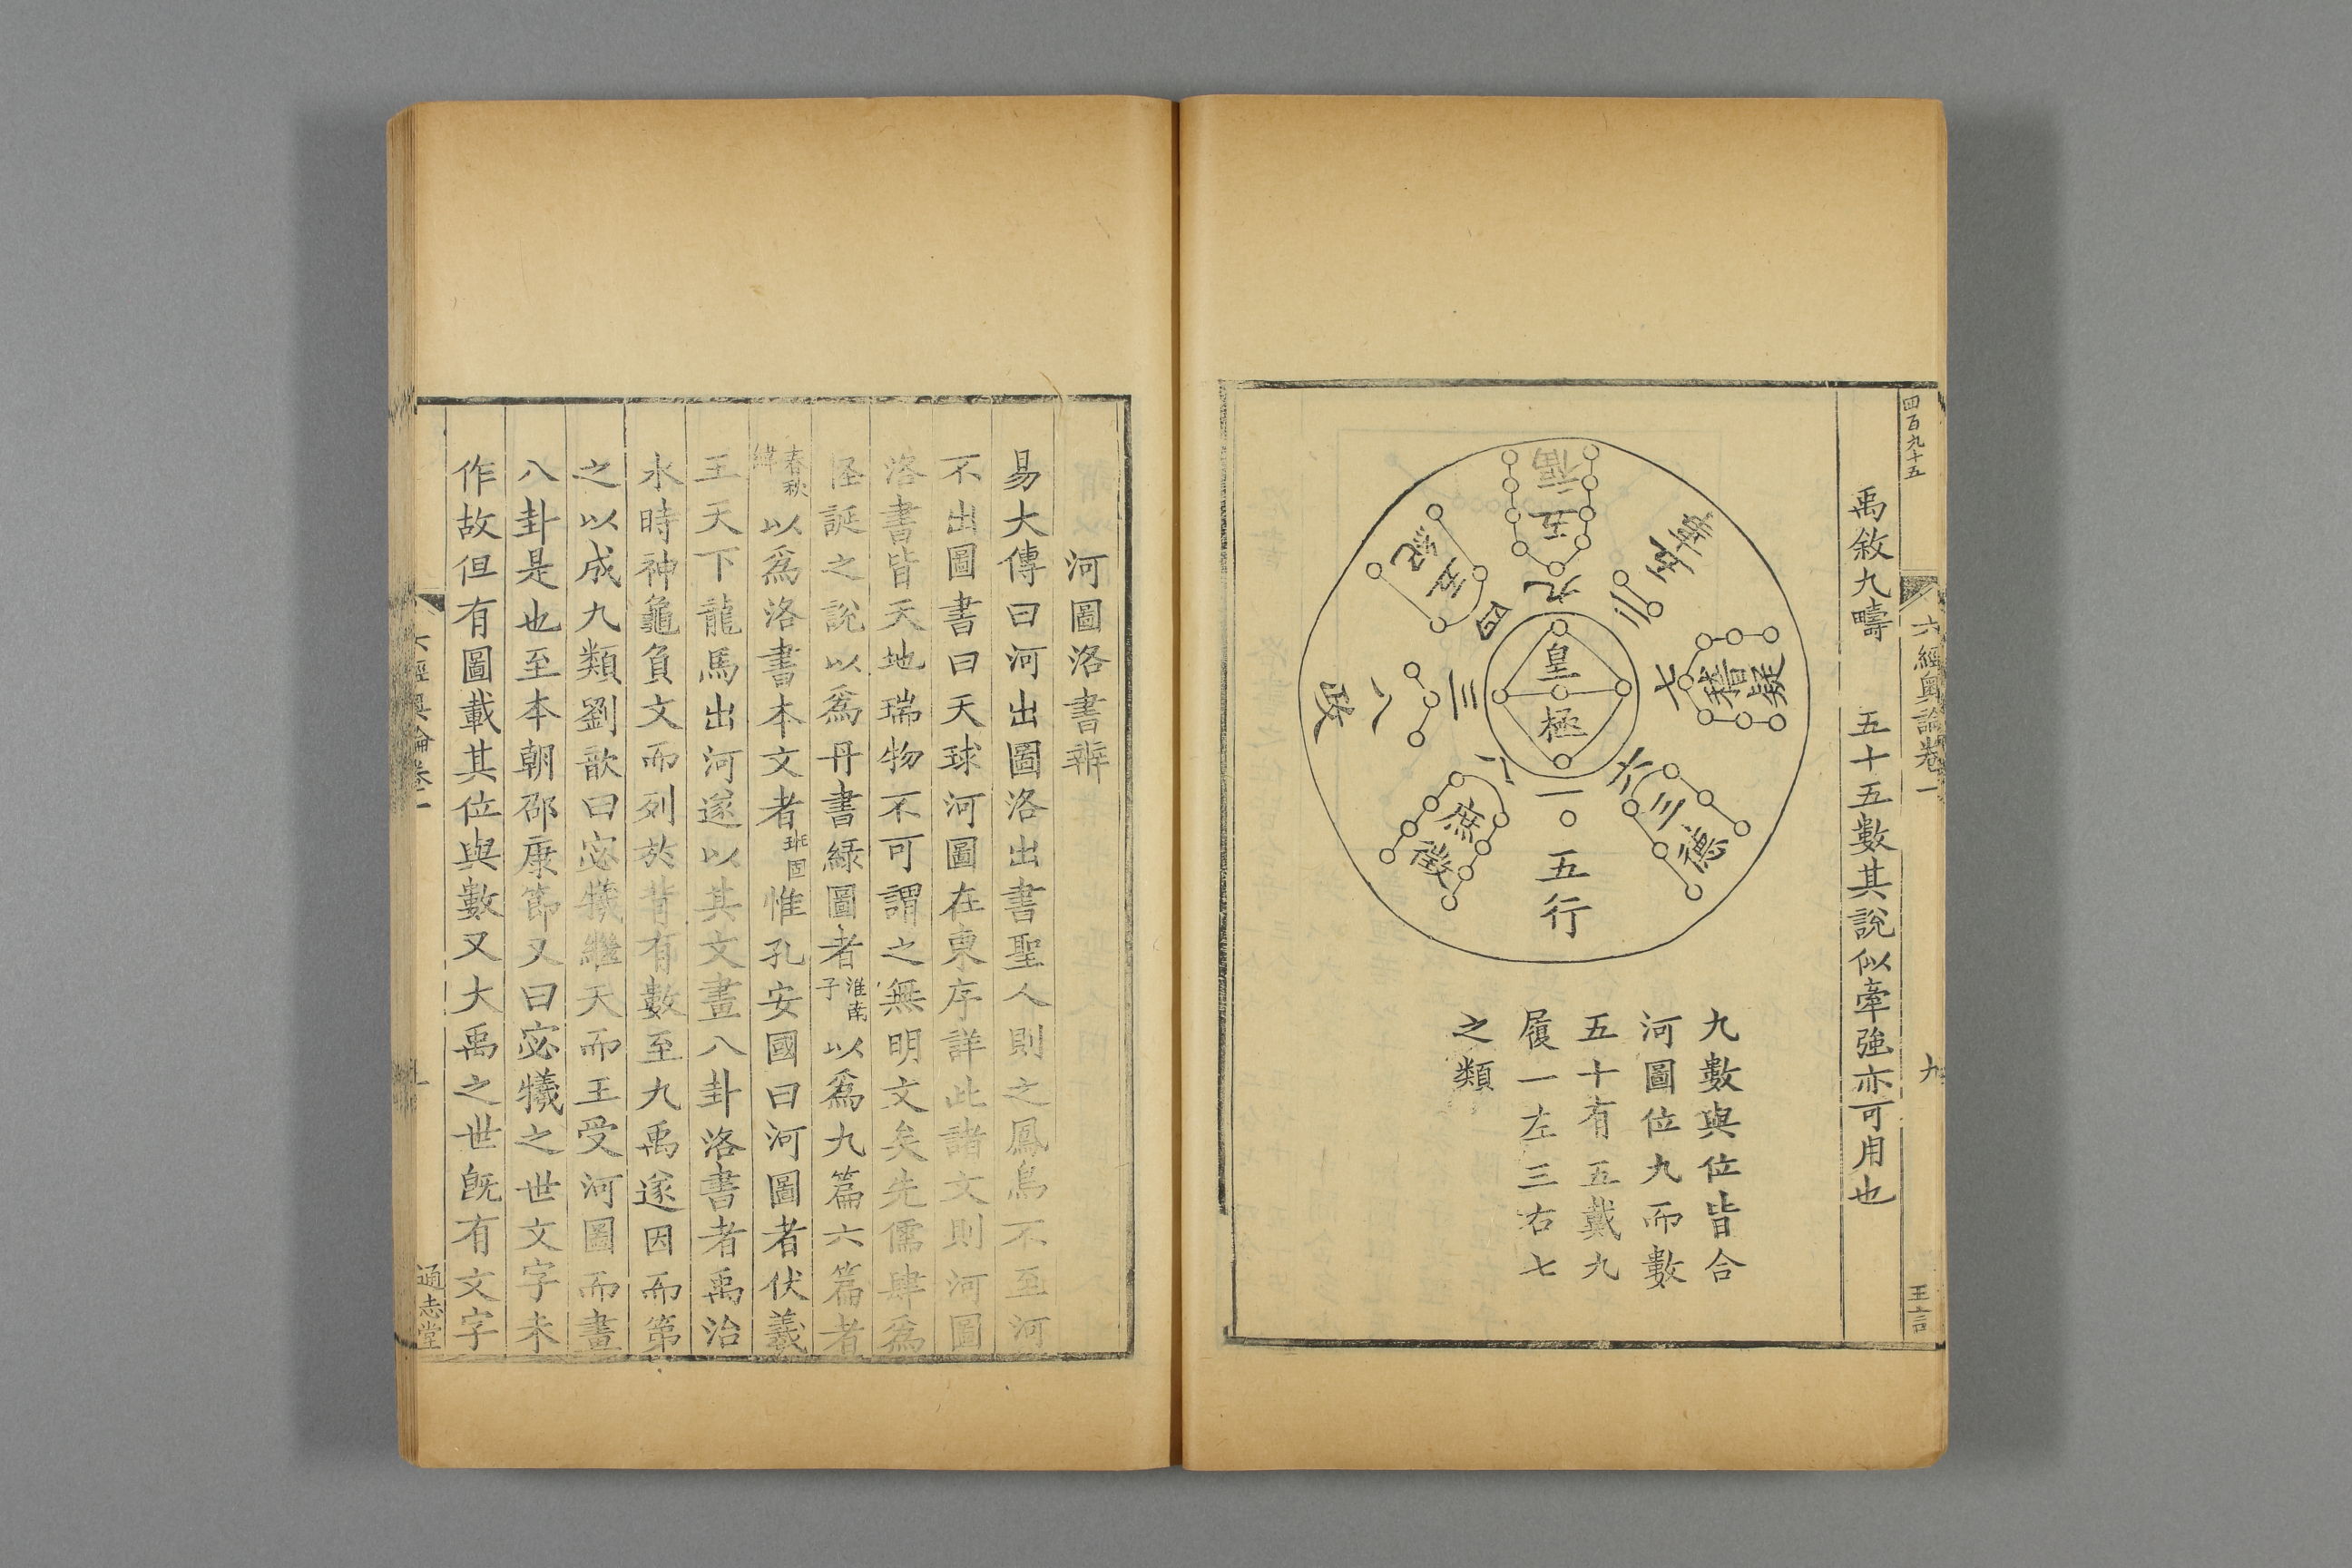 四百九十五
六經奧論卷一
九
王言
禹敘九疇　五十五數其說似牽強亦可用也
九　五福
二　五事
四　五紀
七　稽疑
皇極
三　八政
六　三德
八　庶徵
一　五行
九數與位皆合
河圖位九而數
五十有五戴九
履一左三右七
之類
河圖洛書辨
易大傳曰河出圖洛出書聖人則之鳳鳥不至河
不出圖書曰天球河圖在東序詳此諸文則河圖
洛書皆天地瑞物不可謂之無明文矣先儒肆為
怪誕之說以為丹書綠圖者淮南子以為九篇六篇者
春秋緯以為洛書本文者班固惟孔安國曰河圖者伏羲
王天下龍馬出河遂以其文畫八卦洛書者禹治
水時神龜負文而列於背有數至九禹遂因而第
之以成九類劉歆曰宓犧繼天而王受河圖而畫
八卦是也至本朝邵康節又曰宓犧之世文字未
作故但有圖載其位與數又大禹之世旣有文字
六經奧論卷一
通志堂